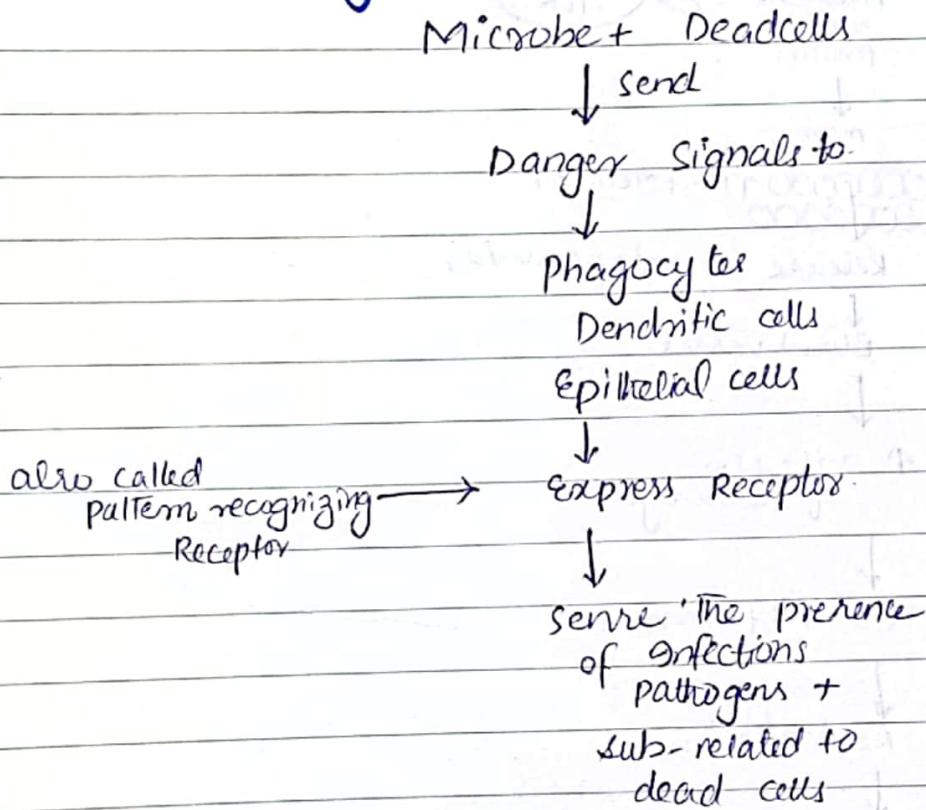 Microbe + Deadcells
send
Danger Signals to
Phagocytes
Dendritic cells
Epithelial cells
also called
pattern recognizing
Receptor
Express Receptor.
Sense the presence
of Infections
pathogens +
sub-related to
dead cells